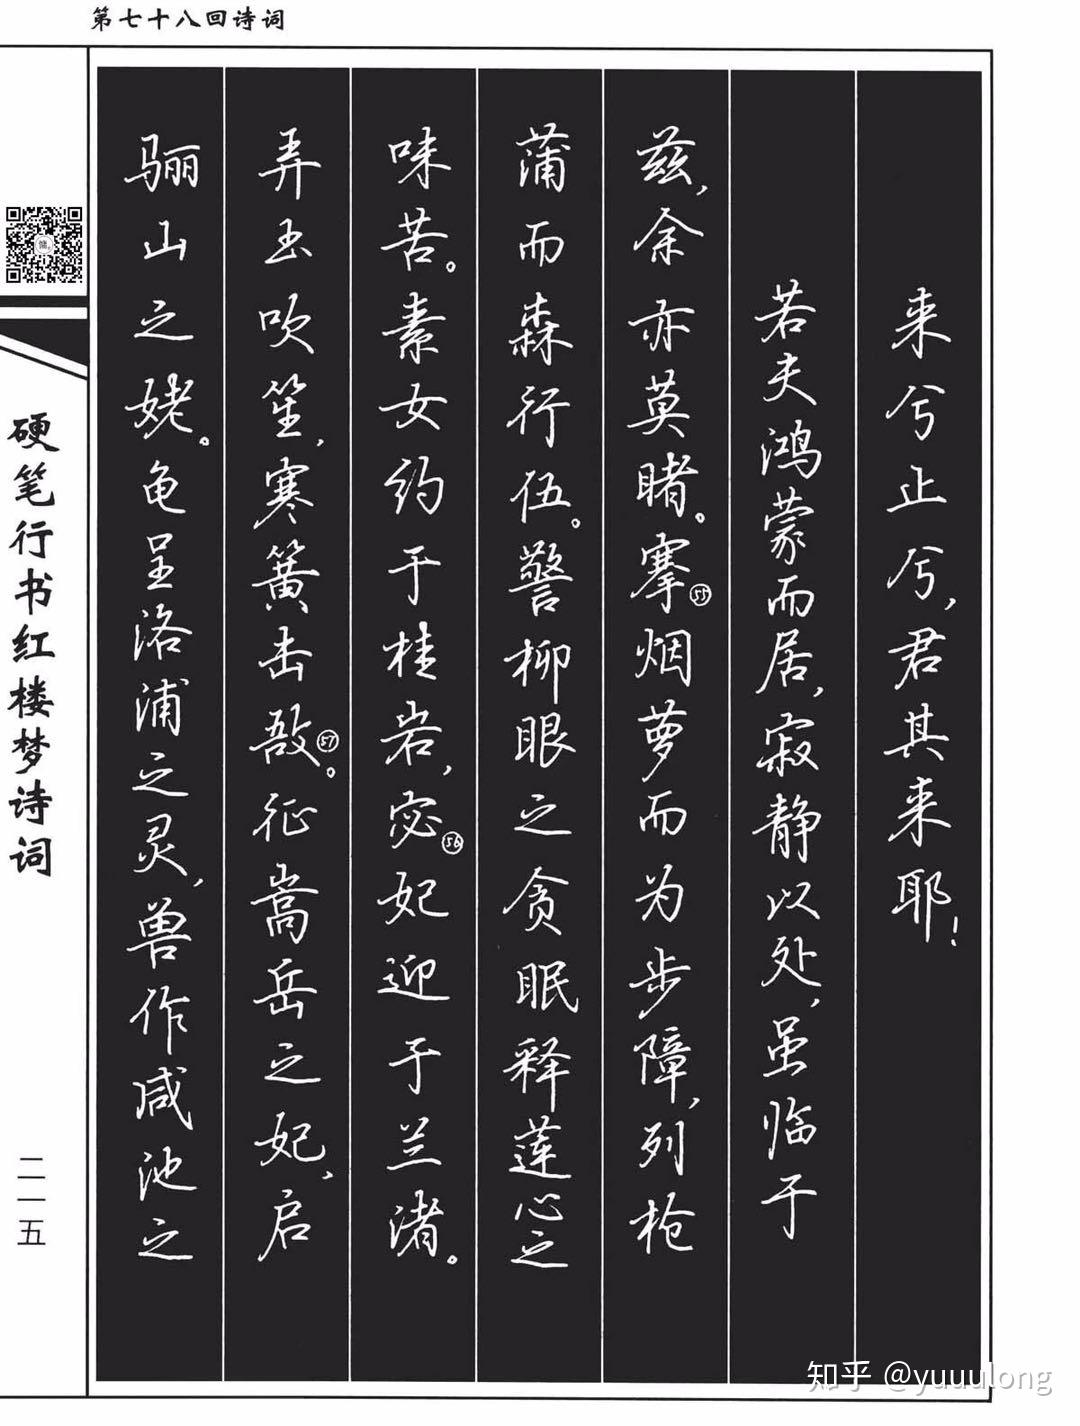 第七十八回诗词
来兮止兮，君其来耶！
若夫鸿蒙而居，寂静以处，虽临于
兹，余亦莫睹。搴㊺烟萝而为步障，列枪
蒲而森行伍。警柳眼之贪眠，释莲心之
味苦。素女约于桂岩，宓㊻妃迎于兰渚。
弄玉吹笙，寒簧击敔㊼。征嵩岳之妃，启
骊山之姥。龟呈洛浦之灵，兽作咸池之
硬笔行书红楼梦诗词
二一五
知乎 @yuuulong